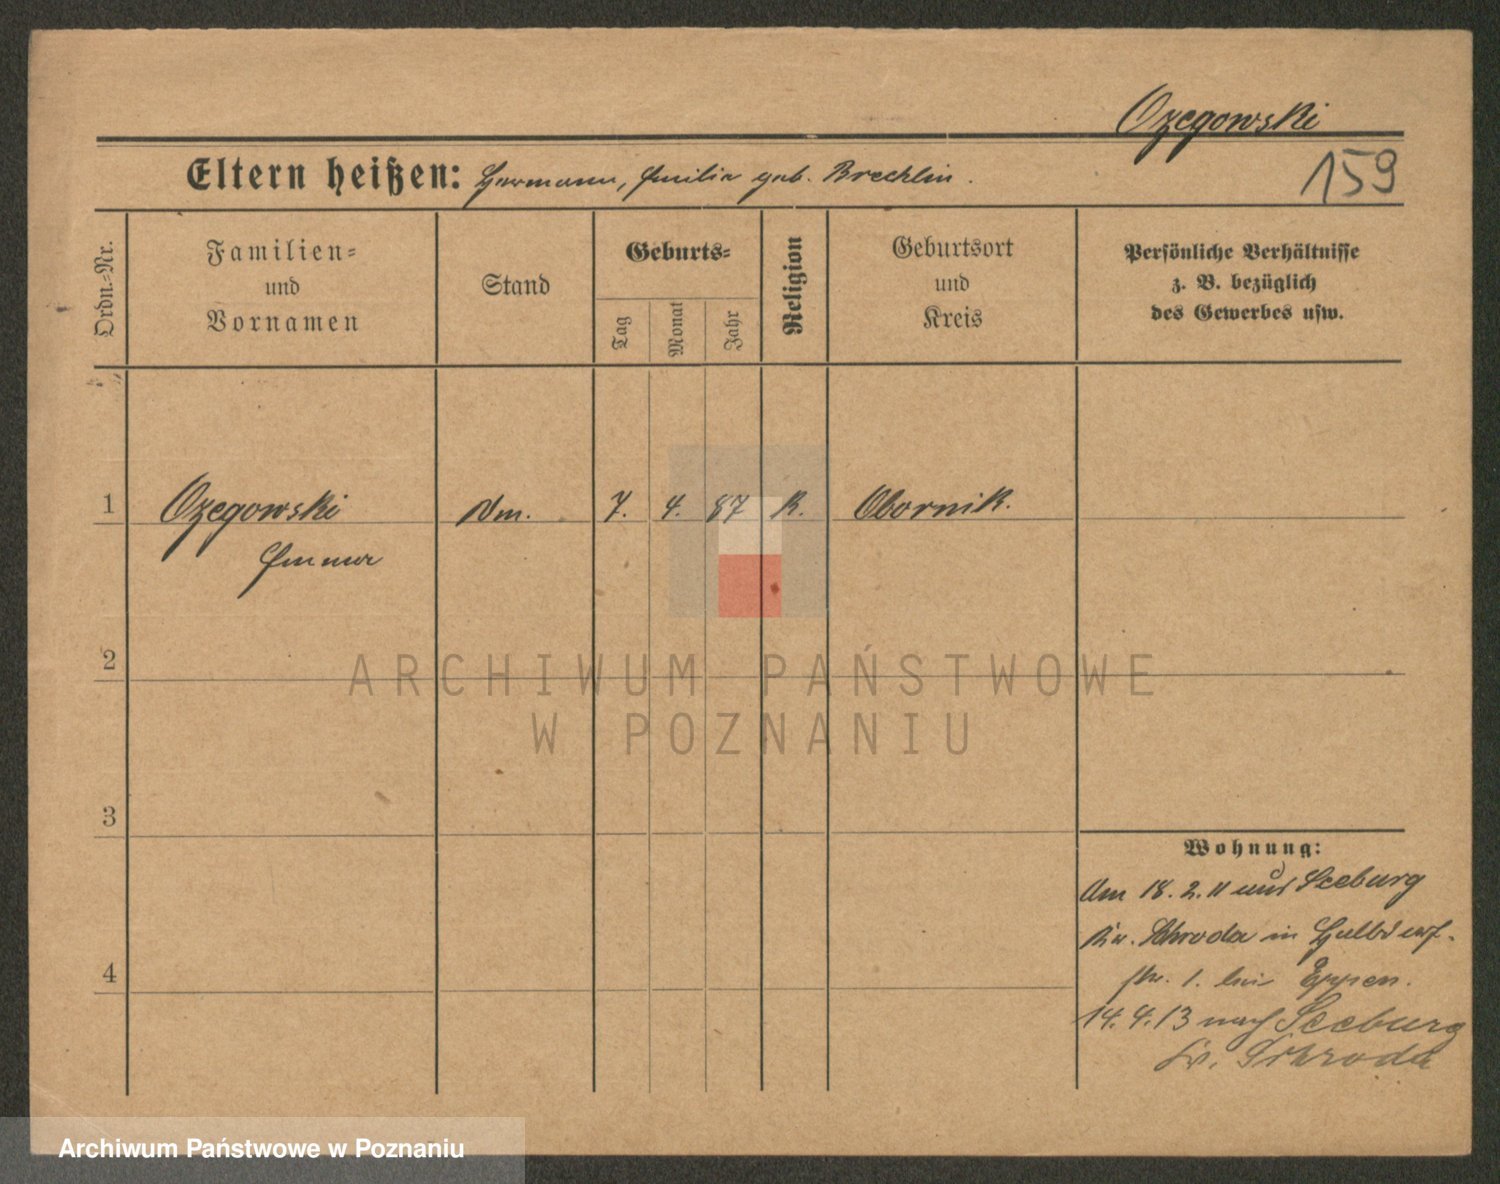 Ozegowski
Eltern heißen: Hermann, Emilie geb. Brechlin.
159
Ordn.-Nr.
Familien-
und
Vornamen
Stand
Geburts-
Tag
Monat
Jahr
Religion
Geburtsort
und
Kreis
Persönliche Verhältnisse
z. B. bezüglich
des Gewerbes usw.
1
Ozegowski
Emma
7. 4. 87 K. Obornik.
2
3
4
ARCHIWUM PAŃSTWOWE
W POZNANIU
Wohnung:
Am 18. 2. 11 aus Seeburg
Kr. Schroda in Halbdorf-
str. 1. bei Eppen.
14. 4. 13 nach Seeburg
Kr. Schroda
Archiwum Państwowe w Poznaniu